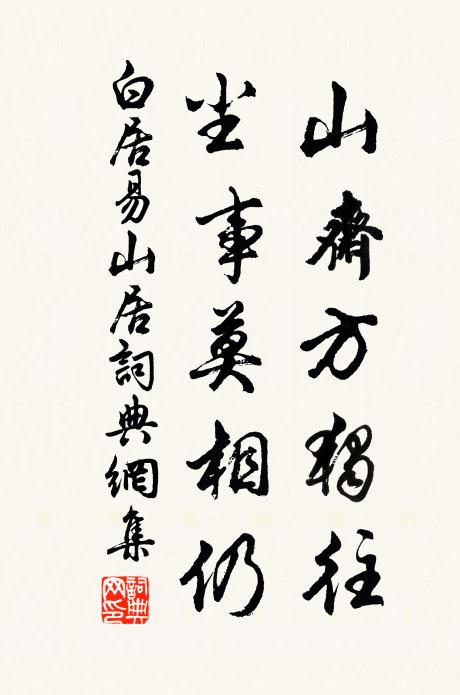 山齋方獨往
尘事莫相仍
白居易山居詞典網集
詞典
网印